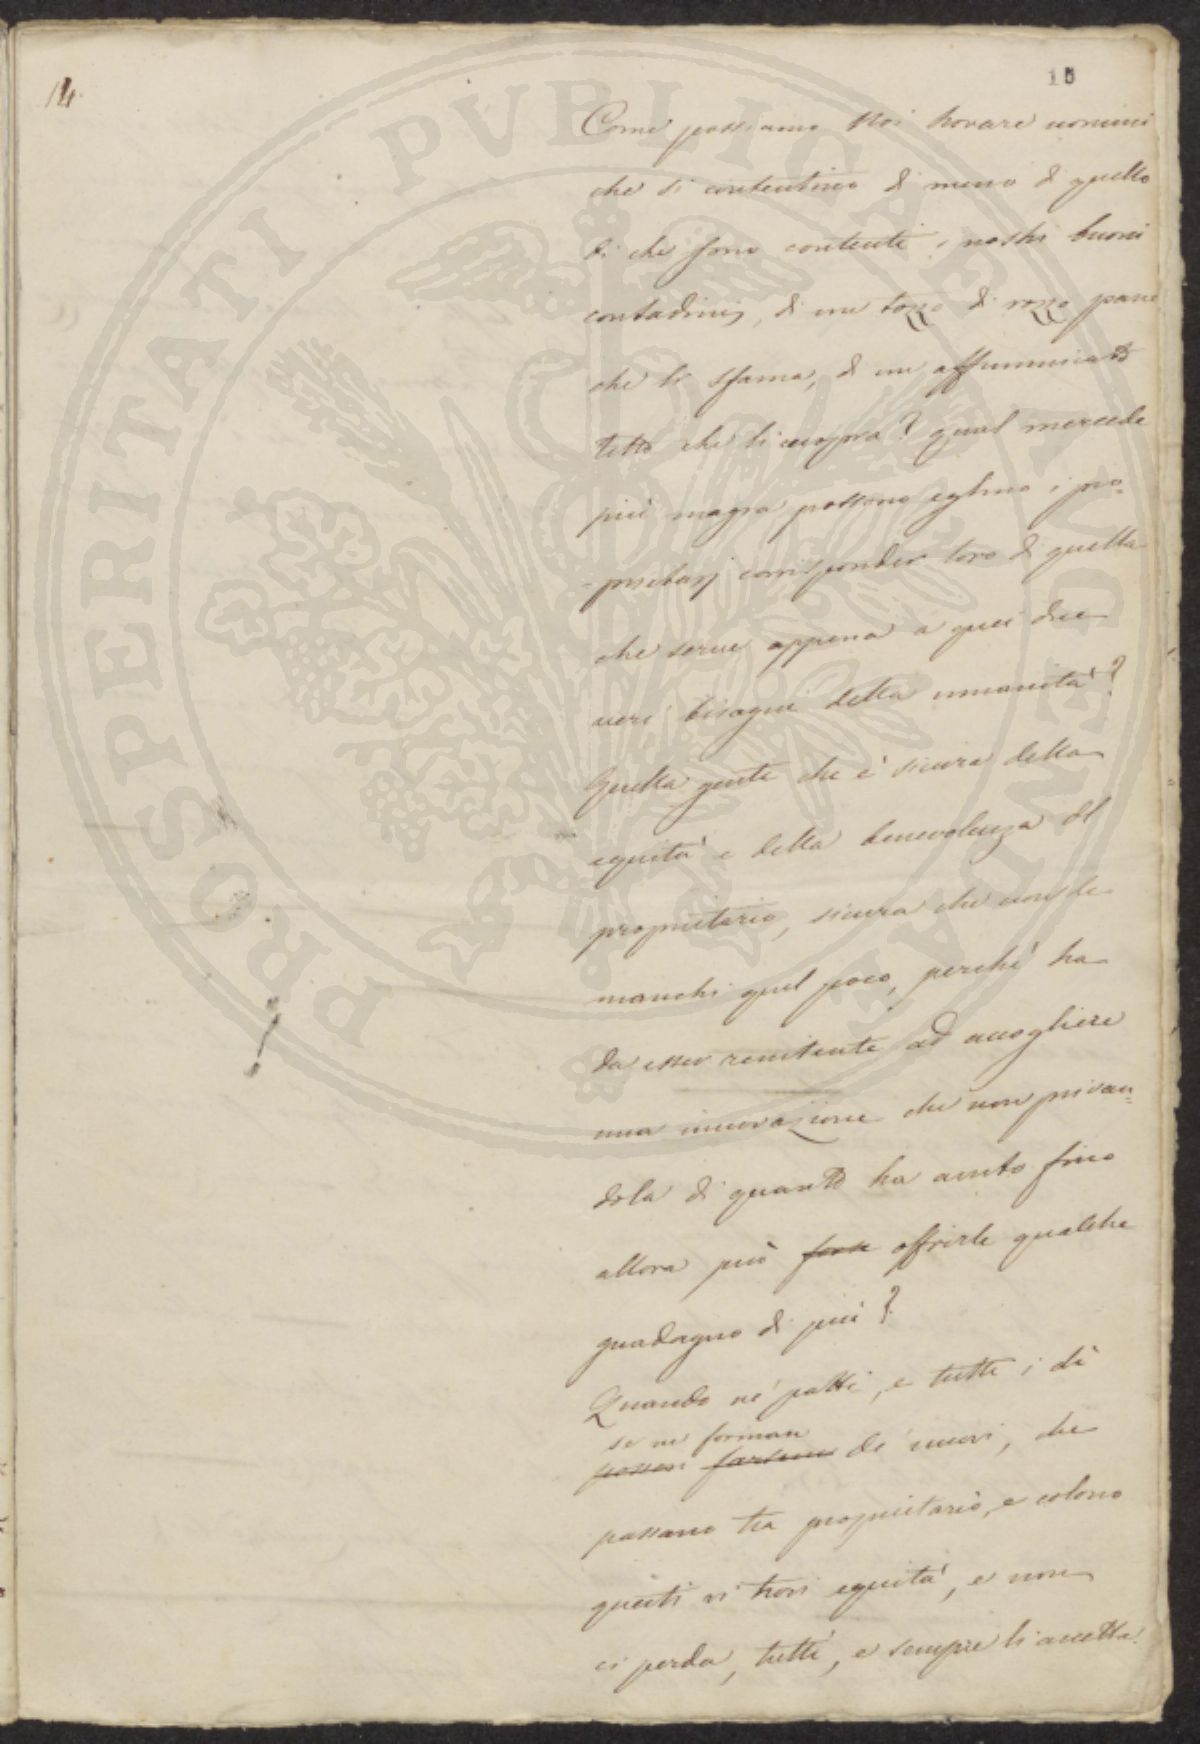 14.
10
PROSPERITATI PVBLICAE PROVEHENDAE
Come possiamo Noi trovare uomini
che si contentino di meno di quello
di che sono contenti i nostri buoni
contadini, di un tozzo di rozzo pane
che li sfama, di un affummicato
tetto che li cuopra? qual mercede
più magra possono eglino i pro=
=prietarj corrisponder loro di quella
che serve appena a quei due
veri bisogni della umanità?
Quella gente che è sicura della
equità e della benevolenza del
proprietario, sicura che non le
manchi quel poco, perché ha
da esser renitente ad accogliere
una innovazione che non privan=
dola di quanto ha avuto fino
allora può forse offrirle qualche
guadagno di più?
Quando ne' patti, e tutti i dì
se ne forman
posson farsene de' nuovi, che
passano tra proprietario, e colono
questi vi trovi equità, e non
ci perda, tutti, e sempre li accetta.